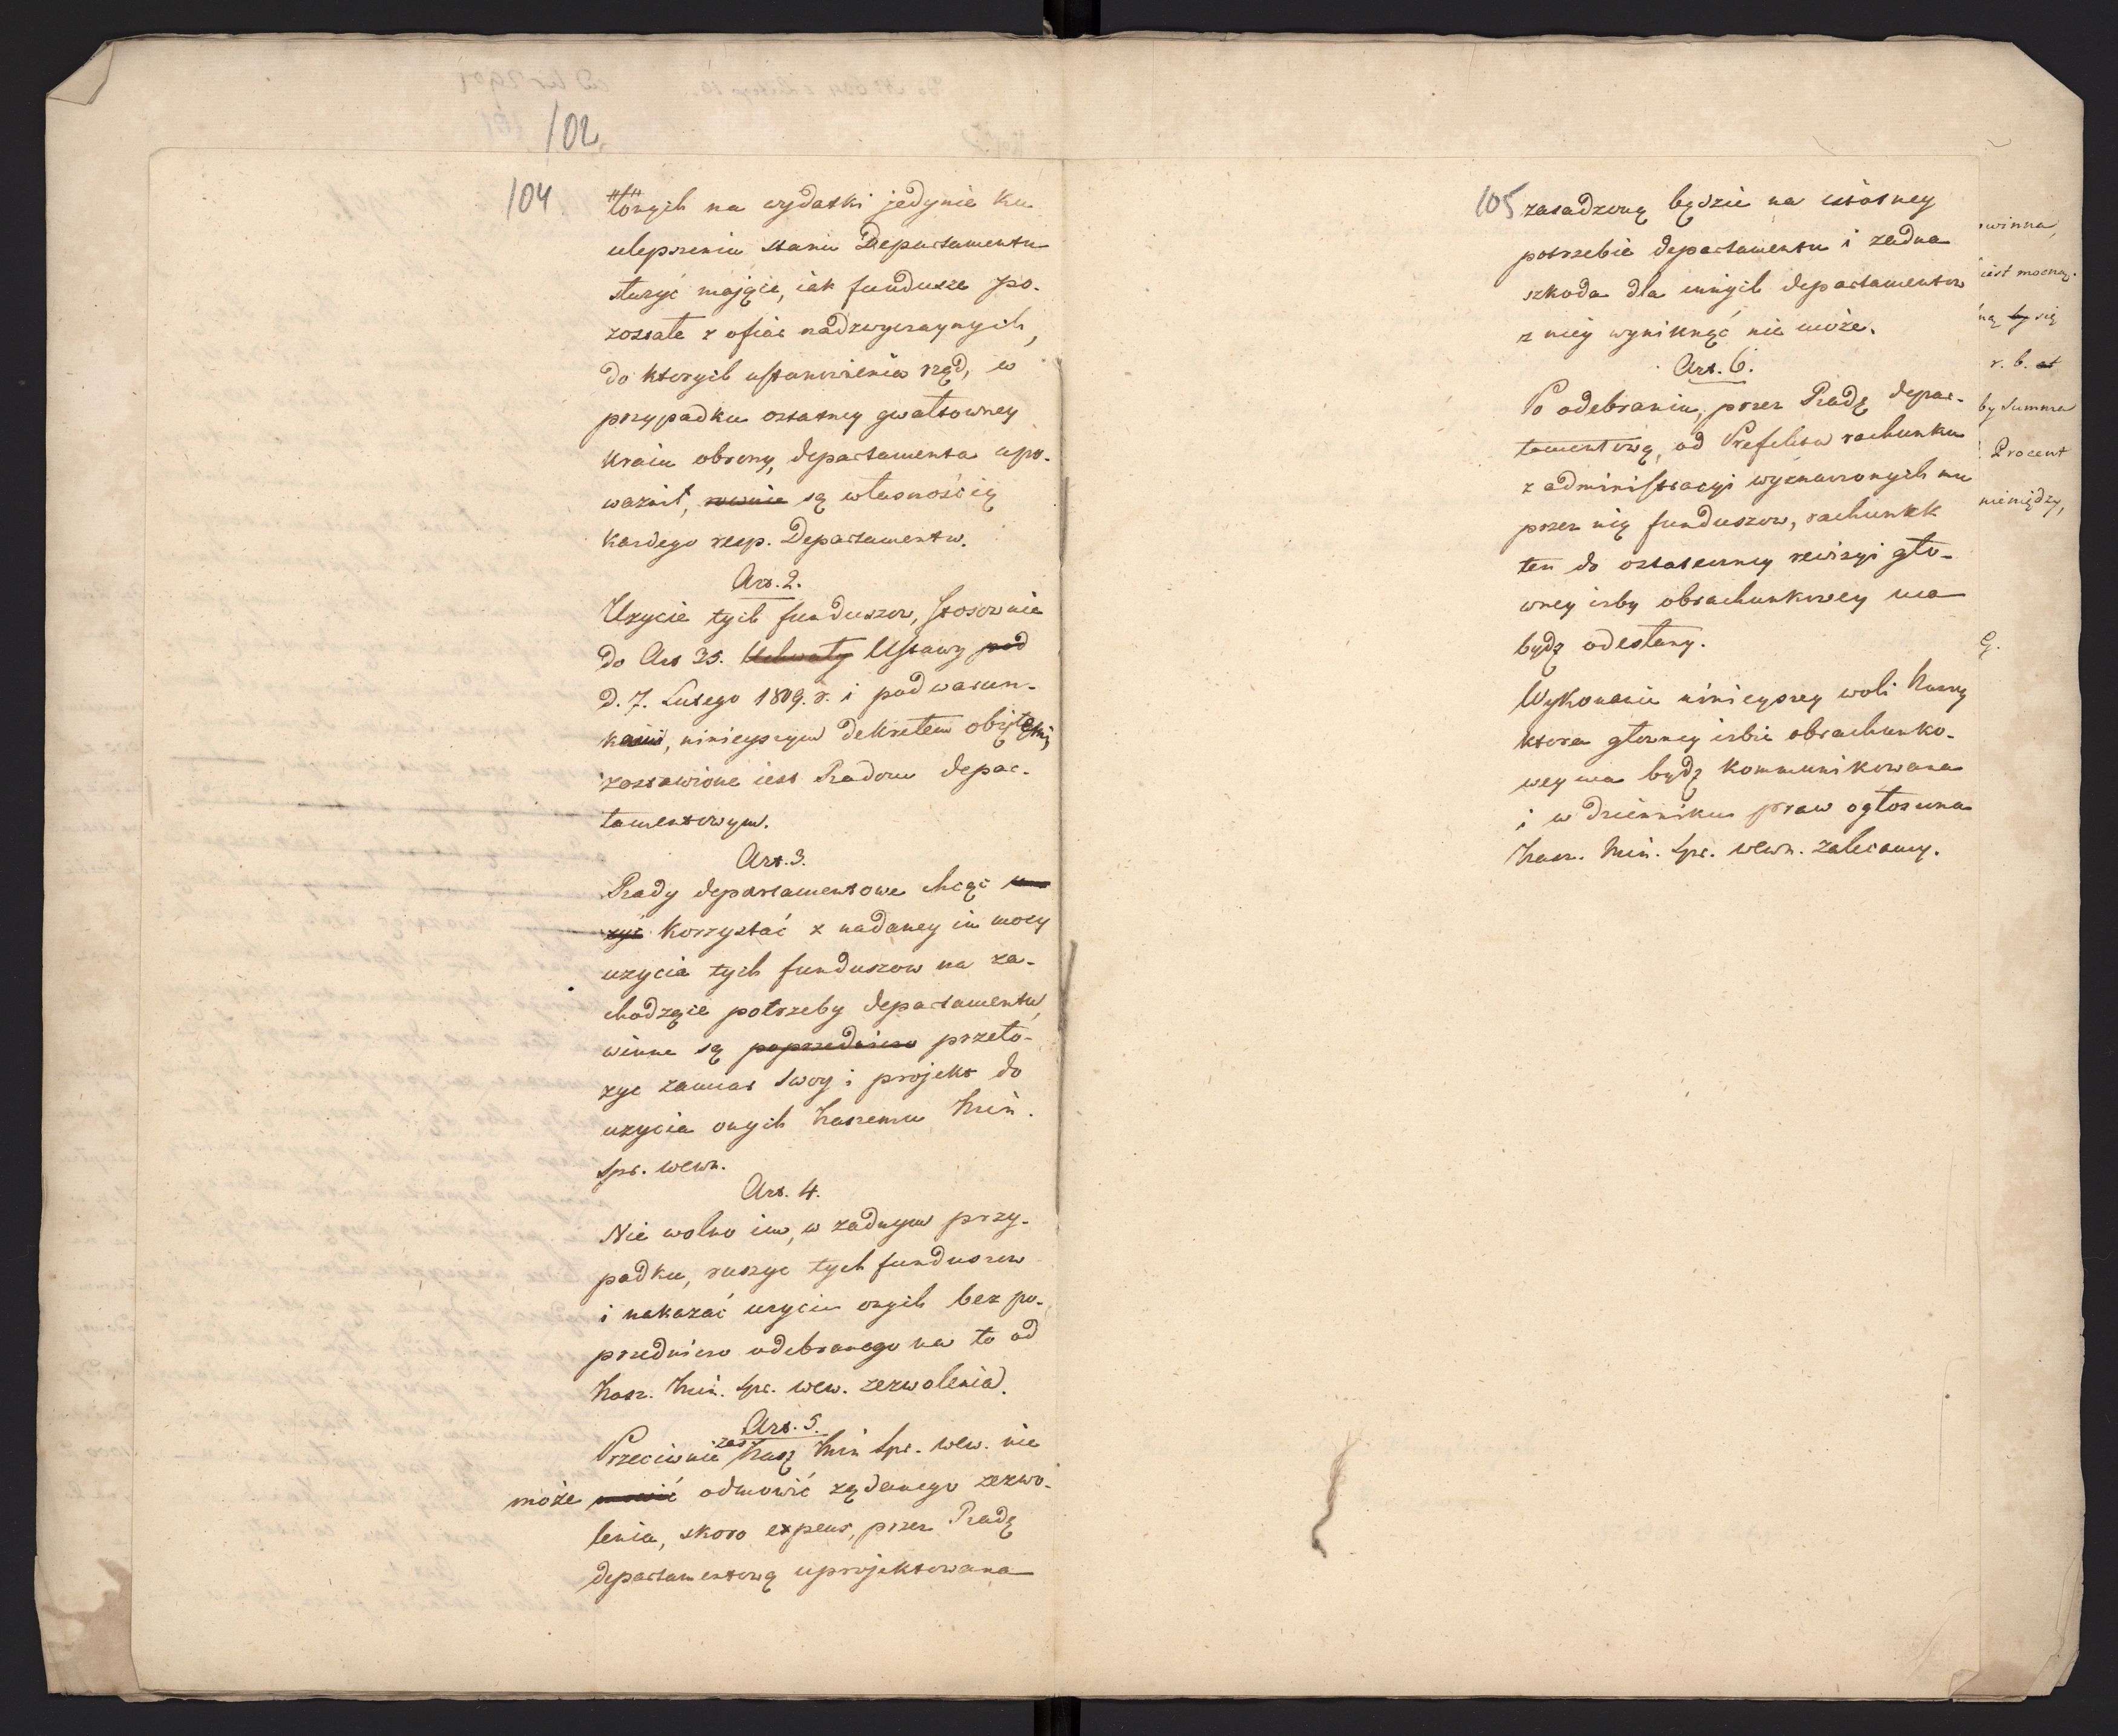 102.
104
których na wydatki jedynie ku
ulepszeniu stanu Departamentu
służyć mające, iak fundusze po-
zostałe z ofiar nadzwyczaynych,
do ktorych ustanowienia rząd, w
przypadku ostatney gwałtowney
kraiu obrony, departamenta upo-
ważnił, rownie są własnością
każdego resp. Departamentu.
Art. 2.
Użycie tych funduszow, stosownie
do Art 35. Uchwały Ustawy pod
D. 7. Lutego 1809. r. i pod warun-
kami, ninieyszym dekretem obiętemi,
zostawione iest Radom depar-
tamentowym.
Art. 3.
Rady departamentowe chcąc
żyć korzystać z nadaney im mocy
użycia tych funduszow na za-
chodzące potrzeby departamentu,
winne są poprzedniczo przeło-
życ zamiar swoy i projekt do
użycia onych Naszemu Min.
Spr. wewn.
Art. 4.
Nie wolno im, w żadnym przy-
padku, ruszyc tych funduszow
i nakazać użycia onych bez po-
przedniczo odebranego na to od
Nasz. Min. Spr. wew. zezwolenia.
Art. 5.
Przeciwnie zaś Nasz Min Spr. wew. nie
może odmowić żądanego zezwo-
lenia, skoro expens, przez Radę
departamentową uprojektowana
105 zasadzoną będzie na istotney
potrzebie departamentu i żadna
szkoda dla innych departamentow
z niey wyniknąć nie może.
Art. 6.
Po odebraniu, przez Radę depar-
tamentową, od Prefekta rachunku
z administracyi wyznaczonych mu
przez nią funduszow, rachunek
ten do ostateczney rewizyi gło-
wney izby obrachunkowey ma
bydź odesłany.
Wykonanie ninieyszey woli Naszey
ktora głowney izbie obrachunko-
wey ma bydź kommunikowana
i w dzienniku praw ogłoszona
Nasz. Min. Spr. wewn. zalecamy.
winna,
iest mocną.
ną by się
r. b.
by Summa
Procent